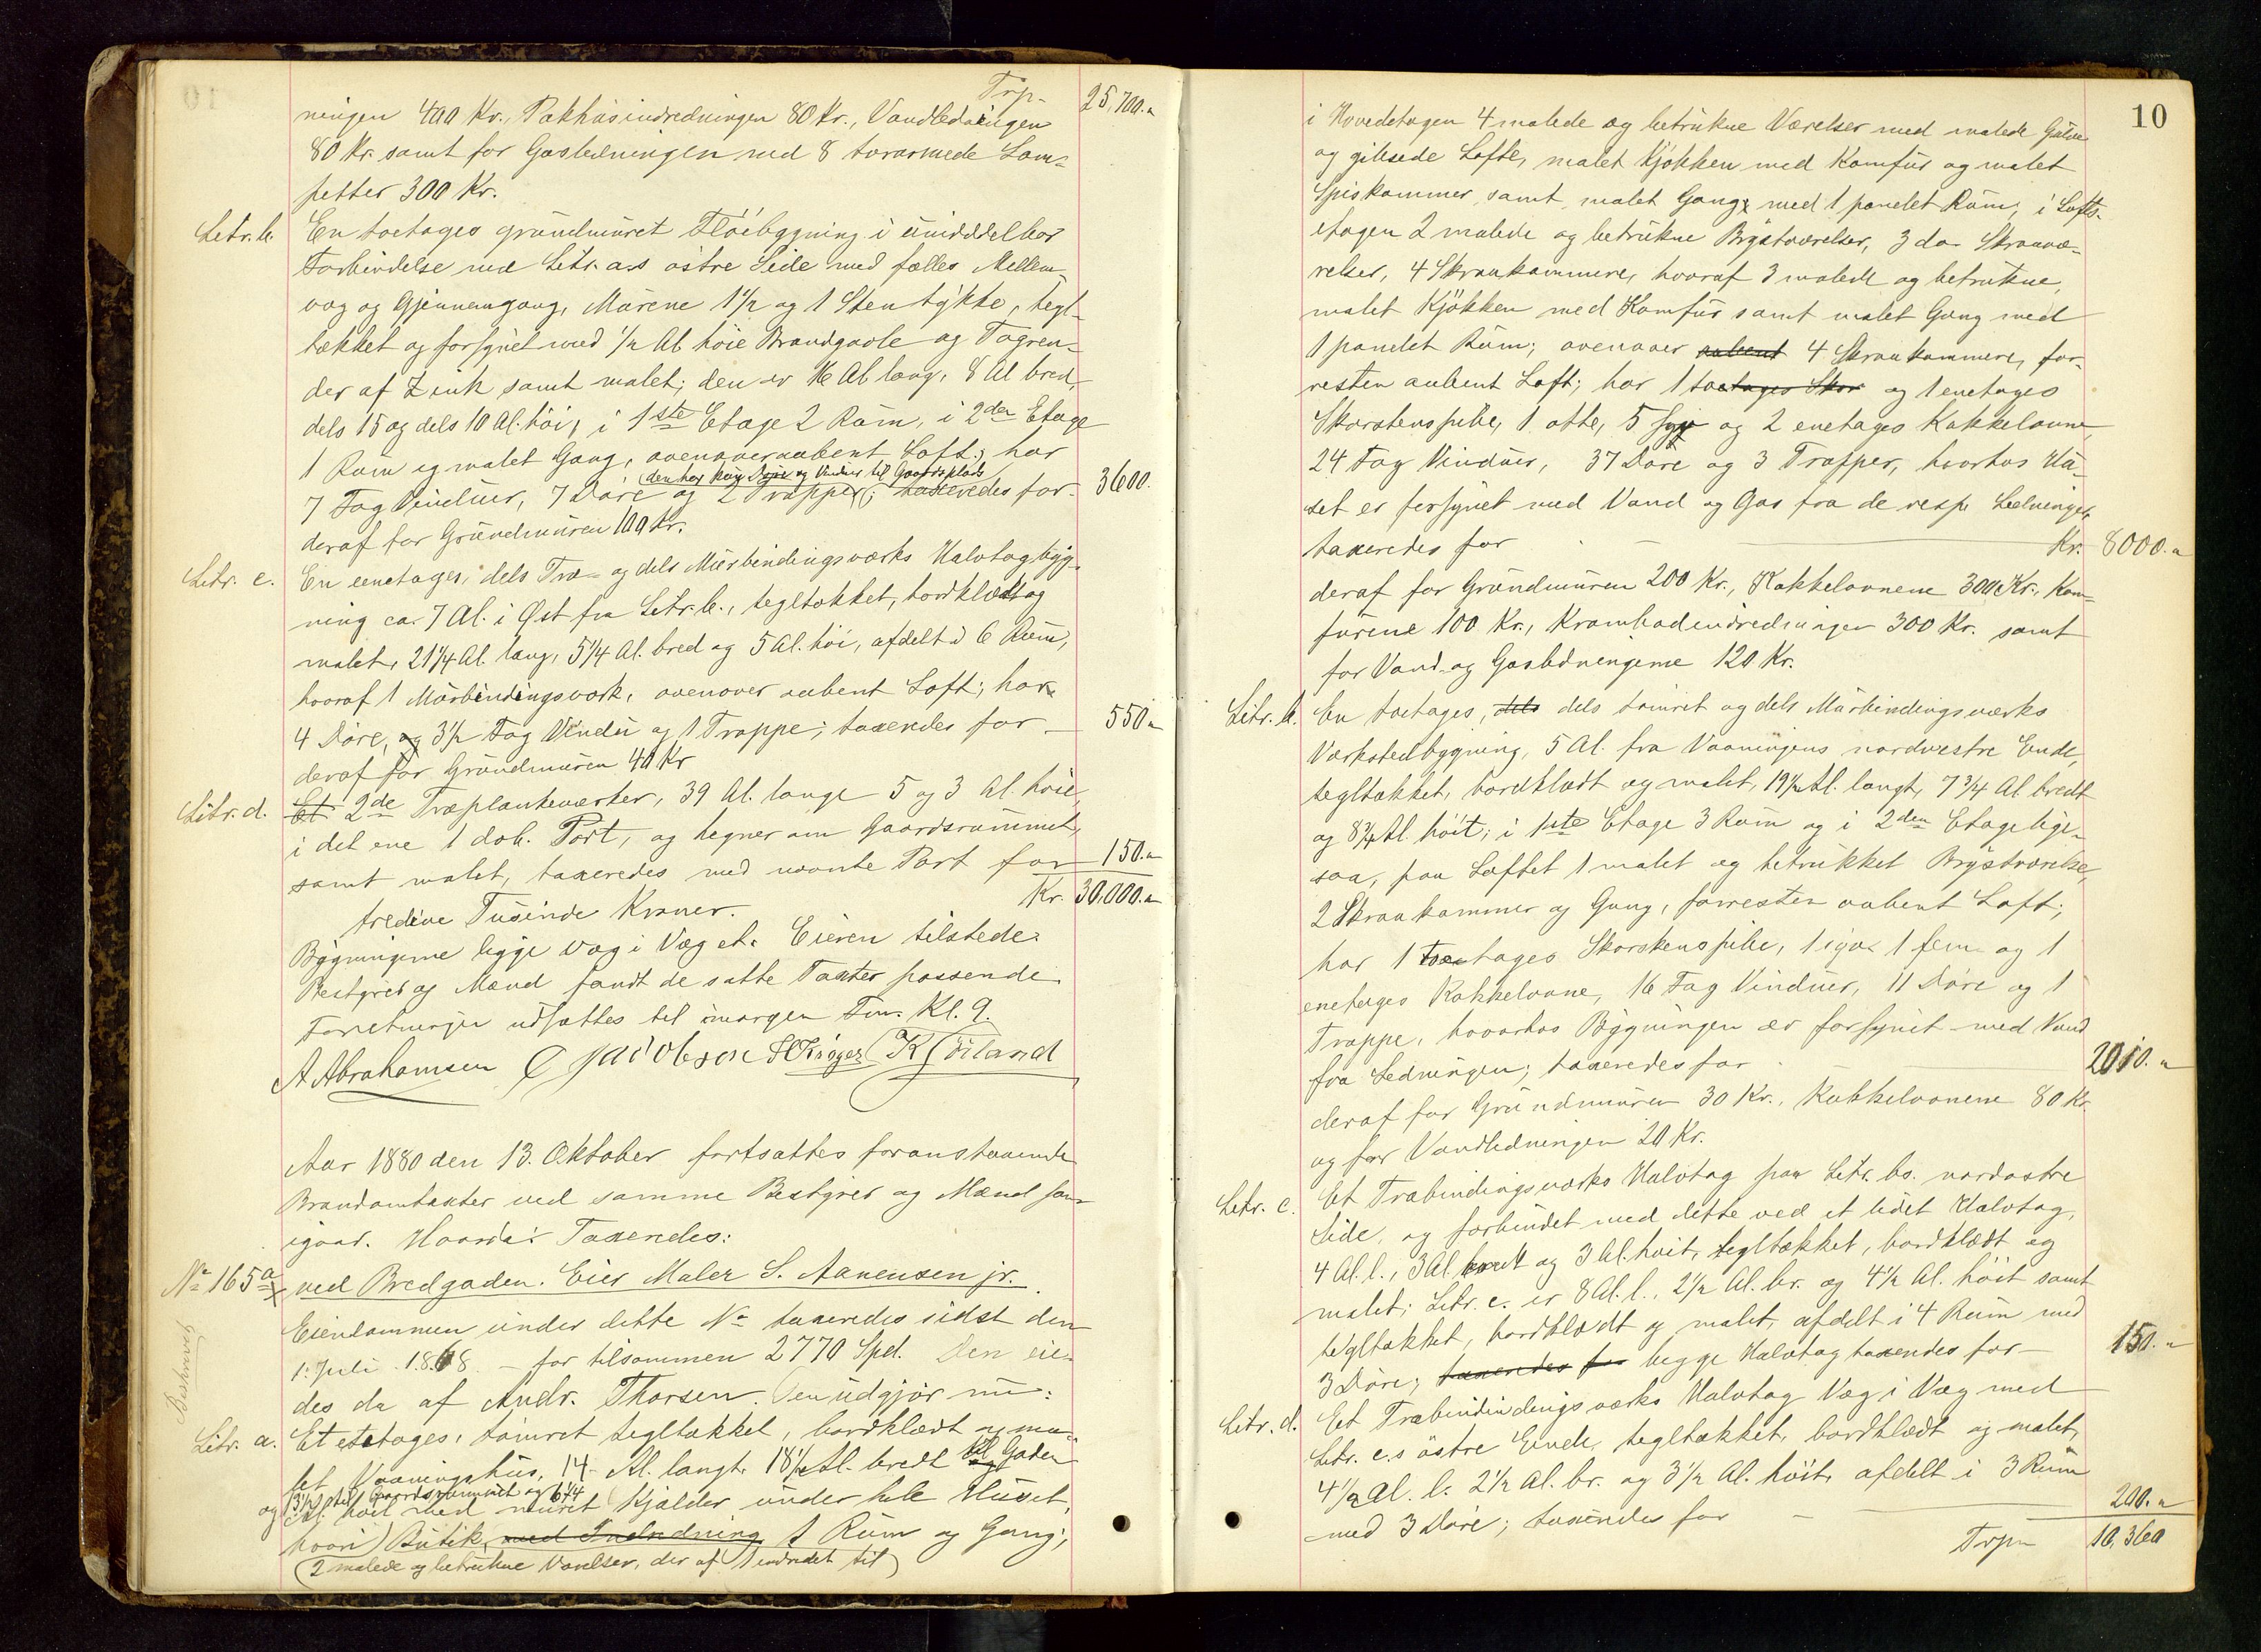 Trp. 25,700.
ningen 400 Kr., Pakhusindredningen 80 Kr., Vandledningen
80 Kr. samt for Gasledningen med 8 toarmede Lam-
petter 300 Kr.
Litr. b. En toetages grundmuret Flöibygning i umiddelbar
Forbindelse med Litr. a.s östre Side med fælles Mellem-
væg og Gjennemgang, Murene 1 1/2 og 1 Sten tykke, tegl-
tækket og forsynet med 1/2 Al. höie Brandgavle og Tagren-
der af Zink samt malet; den er 16 Al lang, 8 Al bred,
dels 15 og dels 10 Al. höi, i 1ste Etage 2 Rum, i 2den Etage
1 Rum og malet Gang, ovenover aabent Loft; har
den har kun Döre og Vinduer til Gaardsplads
7 Fag Vinduer, 7 Döre og 2 Trapper; taxeredes for 3600.
deraf for Grundmuren 100 Kr.
Litr. c. En eenetages, dels Træ- og dels Murbindingsværks Halvtagbyg-
ning ca. 7 Al. i Øst fra Litr. b., tegltækket, bordklædt og
malet, 21 1/4 Al. lang, 5 1/4 Al. bred og 5 Al. höi, afdelt i 6 Rum,
hvoraf 1 Murbindingsværk, ovenover aabent Loft; har
4 Döre, og 3 1/2 Fag Vindu og 1 Trappe; taxeredes for 550
deraf for Grundmuren 40 Kr
Litr. d. Et 2de Træplankeværker, 39 Al. lange 5 og 3 Al. höie,
i det ene 1 dob. Port, og hegner om Gaardsrummet,
samt malet, taxeredes med Port for 150.
Kr. 30,000.
tredive Tusinde Kroner.
Bygningerne ligge Væg i Væg etc. Eieren tilstede.
Bestyrer og Mænd fandt de satte Taxter passende.
Forretningen udsættes til imorgen Fm. Kl. 9.
A Abrahamsen Jacobsen
Aar 1880 den 13. Oktober fortsattes foranstaaende
Brandomtaxter ved samme Bestyrer og Mænd som
igaar. Hvorda: Taxeredes:
No 165a ved Bredgaden. Eier Maler S. Aanensen jr.
Eiendommen under dette No taxeredes sidst den
1. Juli 1868 for tilsammen 2770 Spd. Den eie-
des da af Andr. Thorsen. Den udgjör nu:
Beskrevet
Litr. a. Et etetages, tömret tegltækket, bordklædt og ma-
let Vaaningshus, 14 Al. langt, 18 1/2 Al. bredt til Gaden
og 13 1/2 Al. til Gaardsrummet og 6 1/4
Al. höit med muret Kjælder under hele Huset,
hvori Butik, med Indredning 1 Rum og Gang;
(2 malede og betrukne Værelser, der af 1 indredet til)
10
i Hovedetagen 4 malede og betrukne Værelser med malede Gulve
og gibsede Lofte, malet Kjökken med Komfur og malet
Spiskammer, samt malet Gang med 1 panelet Rum, i Lofts-
etagen 2 malede og betrukne Brystværelser, 3 do. Skraavæ-
relser, 4 Skraakammere, hvoraf 3 malede og betrukne,
malet Kjökken med Komfur samt malet Gang med
1 panelet Rum; ovenover aabent 4 Skraakammere, for-
resten aabent Loft; har 1 toetages Skor og 1 enetages
Skorstenspibe, 1 otte, 5 syv og 2 enetages Kakkelovne,
24 Fag Vinduer, 37 Döre og 3 Trapper, hvorhos Hu-
set er forsynet med Vand og Gas fra de resp. Ledninger,
taxeredes for Kr. 8000.
deraf for Grundmuren 200 Kr., Kakkelovnene 300 Kr., Kom-
furene 100 Kr., Krambodindredningen 300 Kr. samt
for Vand- og Gasledningerne 120 Kr.
Litr. b. En toetages, dels dels tömret og dels Murbindingsværks
Værkstedbygning, 5 Al. fra Vaaningens nordvestre Ende,
tegltækket, bordklædt og malet, 19 1/2 Al. langt, 7 3/4 Al bredt
og 8 3/4 Al. höit; i 1ste Etage 3 Rum og i 2den Etage lige-
saa, paa Loftet 1 malet og betrukket Brystværelse,
2 Skraakammer og Gang, forresten aabent Loft;
har 1 toetages Skorstenspibe, 1 syv- 1 fem- og 1
enetages Kakkelovne, 16 Fag Vinduer, 11 Döre og 1
Trappe, hvorhos Bygningen er forsynet med Vand
fra Ledningen; taxeredes for 2010.
deraf for Grundmuren 30 Kr., Kakkelovnene 80 Kr.
og for Vandledningen 20 Kr.
Litr. c. Et Træbindingsværks Halvtag paa Litr. bs. nordostre
Side, og forbindet med dette ved et lidet Halvtag,
4 Al. l., 3 Al. bredt og 3 Al. höit, tegltækket, bordklædt og
malet; Litr. c. er 8 Al. l., 2 1/2 Al. br. og 4 1/2 Al. höit samt
tegltækket, bordklædt og malet, afdelt i 4 Rum med
3 Döre; taxeredes for begge Halvtag taxeredes for 150.
Litr. d. Et Træbindindingsværks Halvtag Væg i Væg med
Litr. c.s östre Ende, tegltækket, bordklædt og malet,
4 1/2 Al. l. 2 1/2 Al. br. og 3 1/2 Al. höit, afdelt i 3 Rum
med 3 Döre; taxeredes for 200.
Trp. 10,360